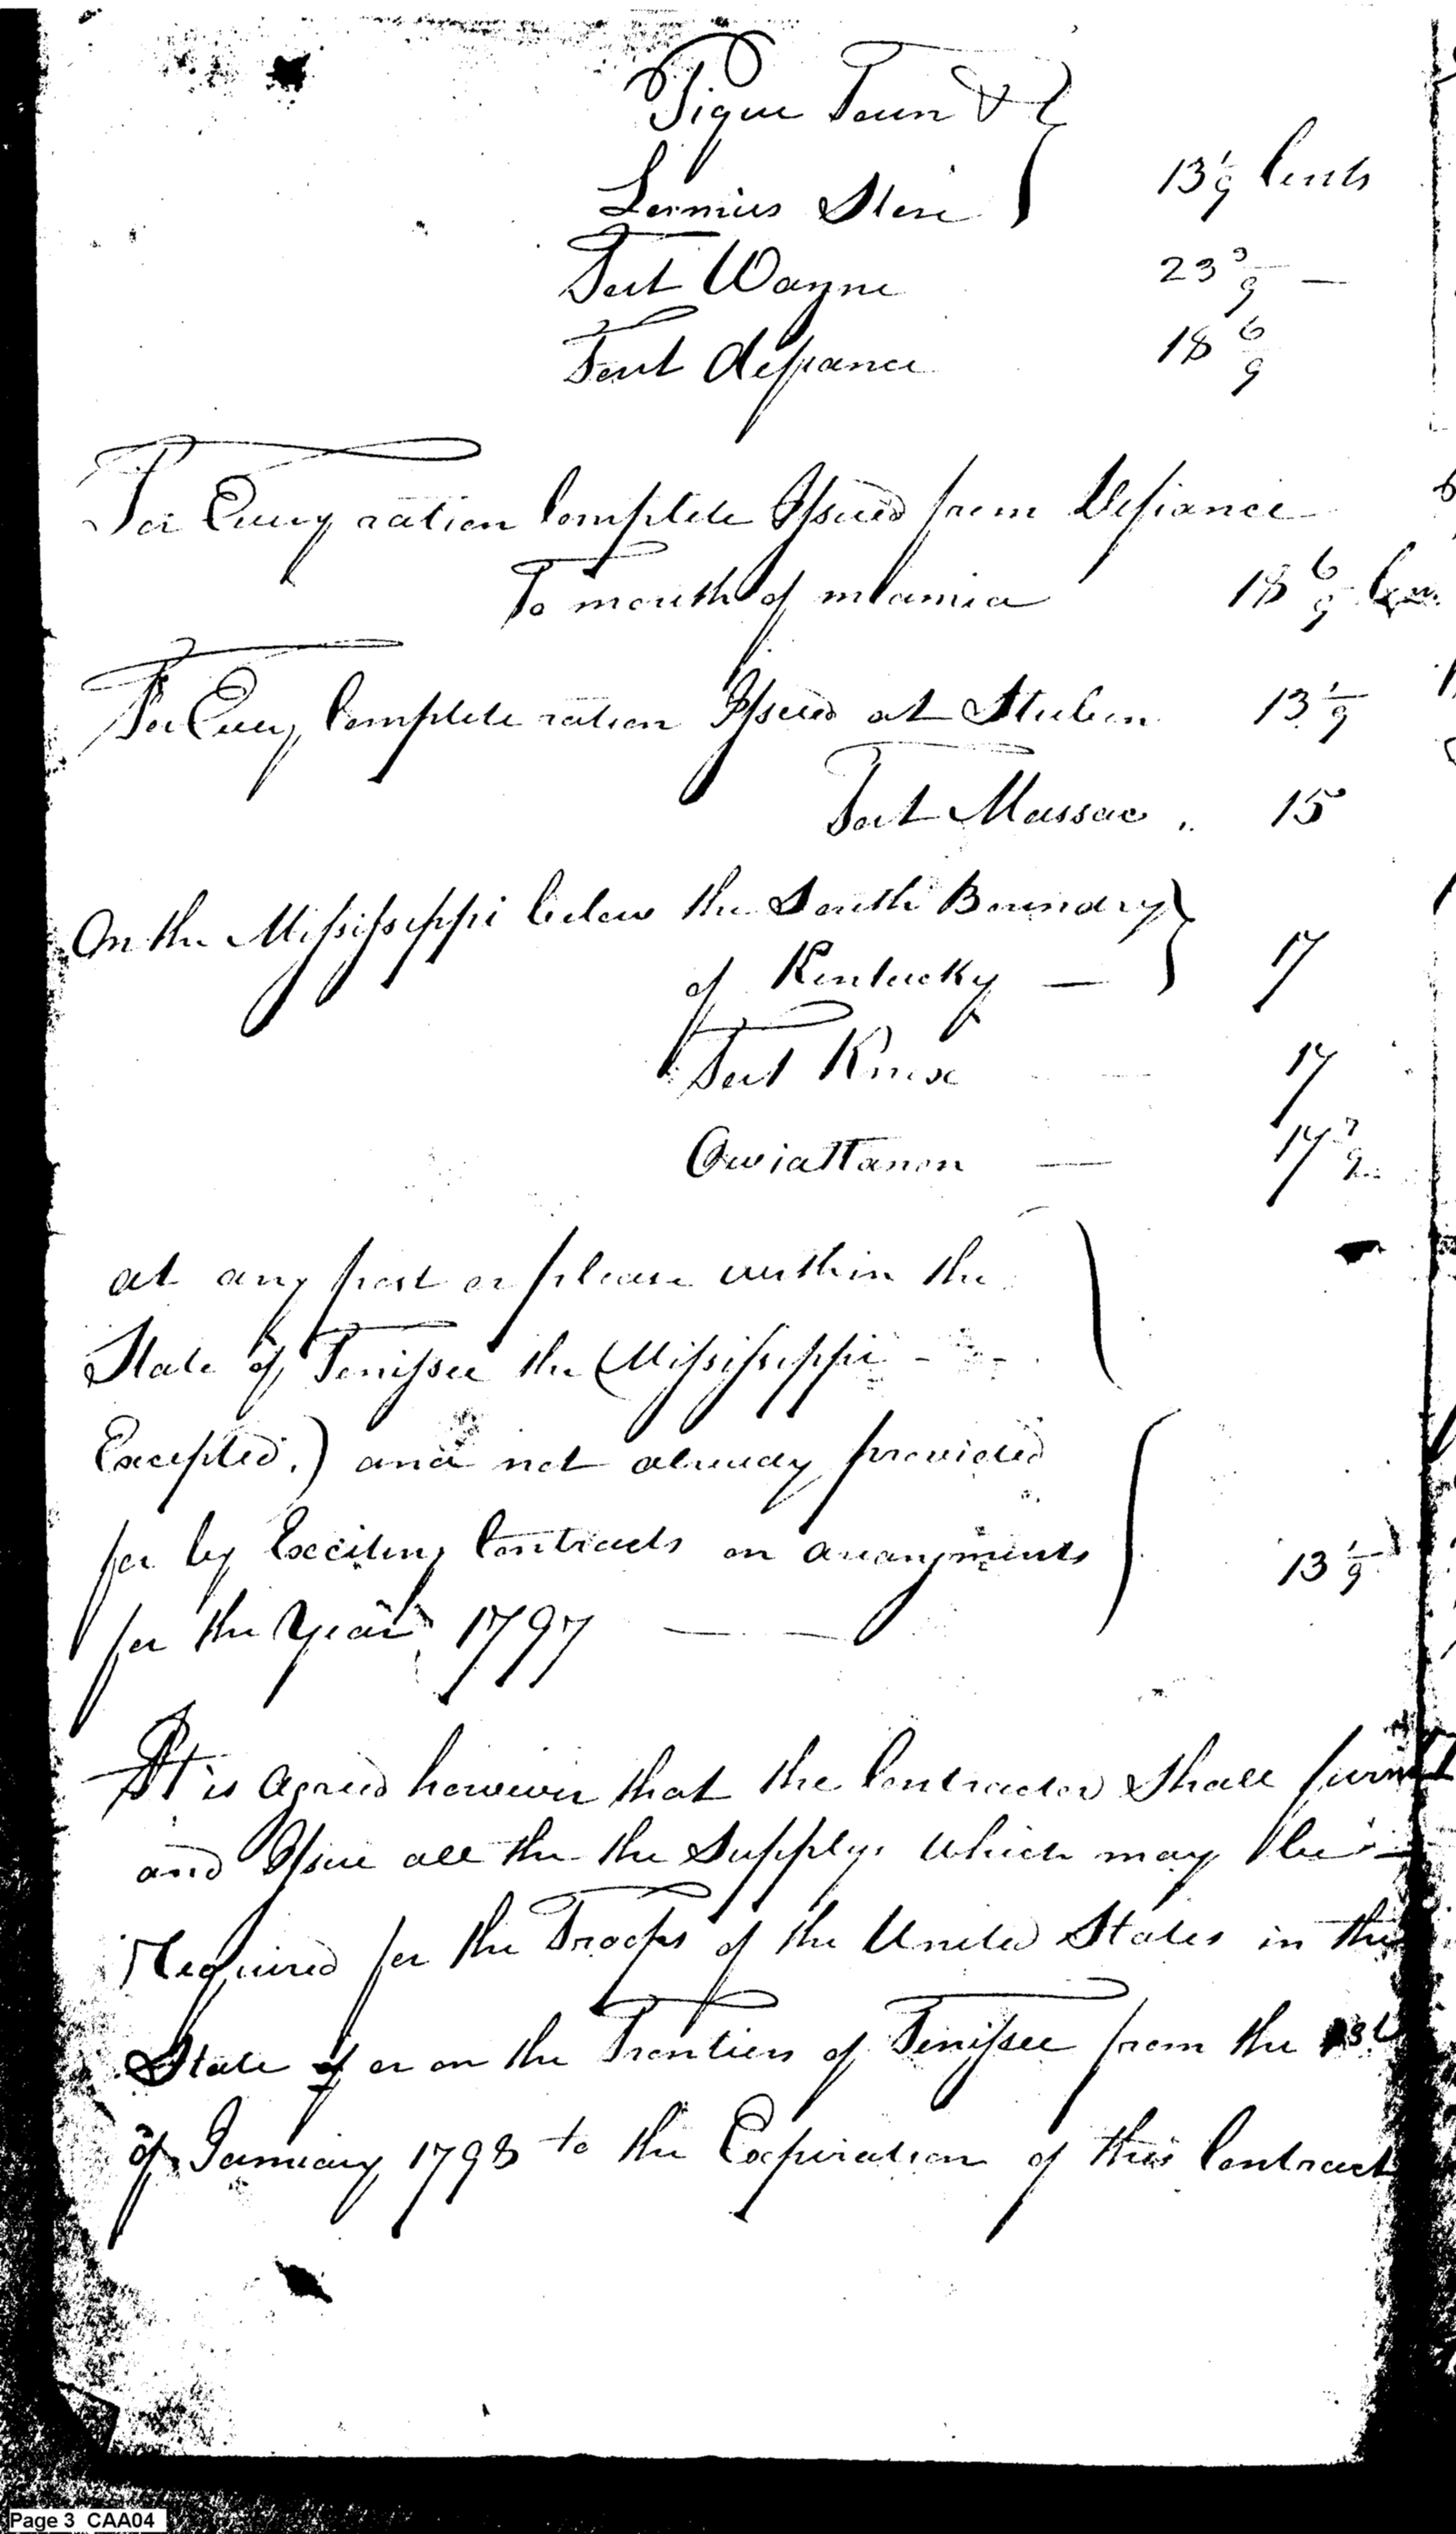 Pique Town &
Lormies Store } 13 1/9 Cents
Fort Wayne 23 3/9 —
Fort defiance 18 6/9
For Every ration Complete Issued from Defiance
To mouth of miamia 18 6/9
For Every Complete ration Issued at Steuben 13 1/9
Fort Massac 15
On the Mississippi below the South Boundary
of Kentucky — } 17
Fort Knox 17
Owiattanon — 17 7/9
at any post or please within the
State of Tenissee the (Mississippi - - -
Excepted.) and not already provided
for by Exciting Contracts on arangments } 13 1/9
for the Year 1797 — —
It is Agreed however that the Contractor Shall
and Issue all the the Supplys which may be
Required for the Troops of the United States in the
State of or on the Frontiers of Tenissee from the 1st
of January 1798 to the Expiration of this Contract
Page 3 CAA04